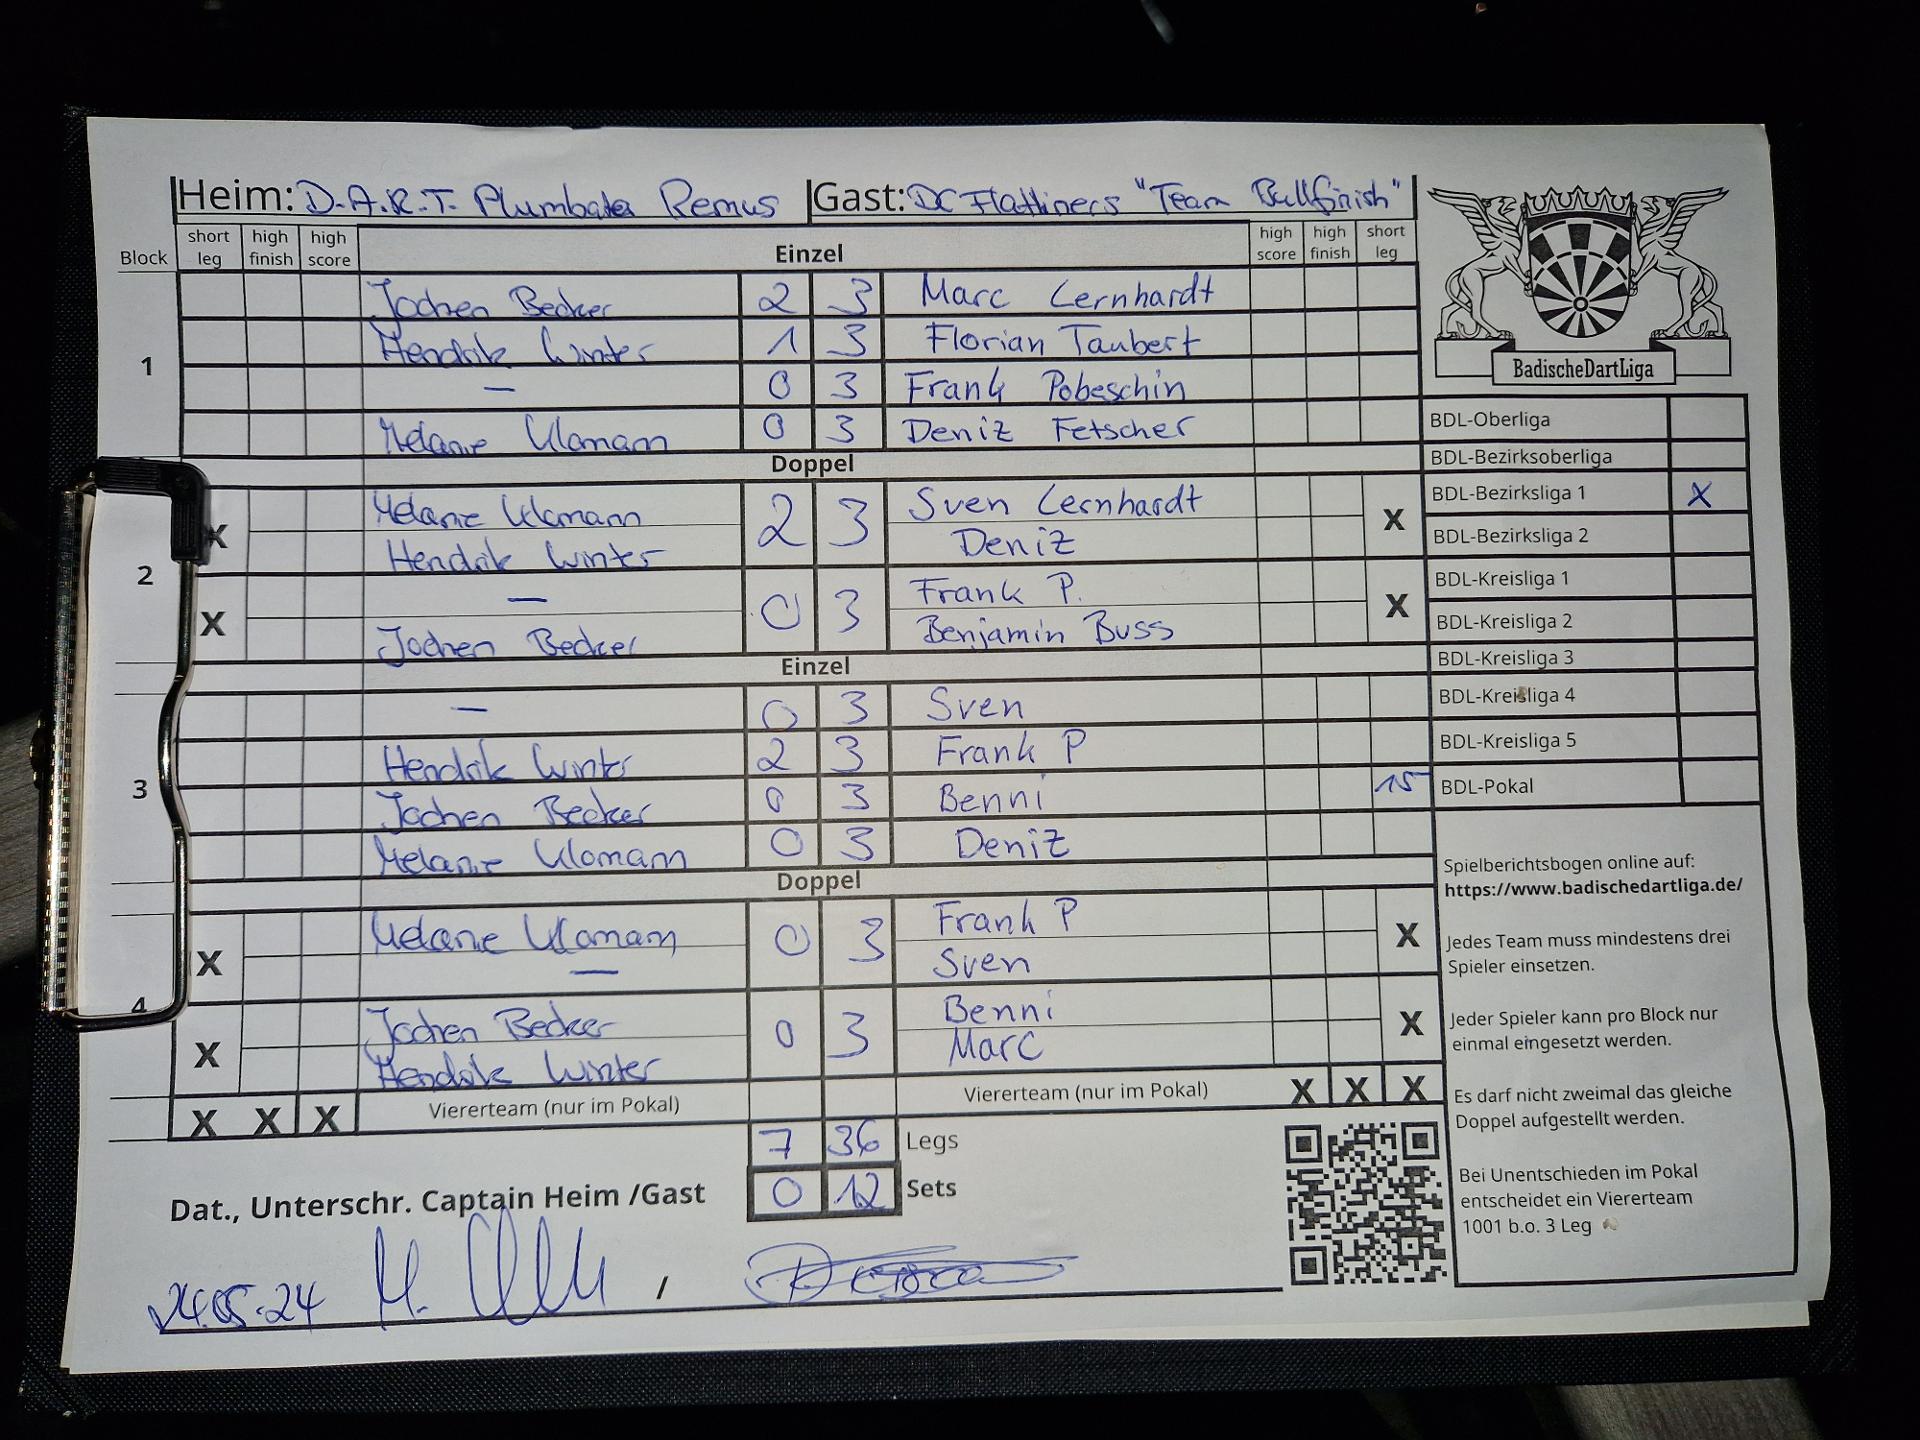 Heim: D.A.R.T. Plumbata Remus Gast: DC Flatliners "Team Bullfinish"
Block short leg high finish high score Einzel high score high finish short leg
1
Jochen Becker 2 3 Marc Lernhardt
Hendrik Winter 1 3 Florian Taubert
— 0 3 Frank Pobeschin
Melanie 0 3 Deniz Fetscher
Doppel
2
X Melanie 2 3 Sven Lernhardt X
Hendrik Winter Deniz
X — 0 3 Frank P. X
Jochen Becker Benjamin Buss
Einzel
3
— 0 3 Sven
Hendrik Winter 2 3 Frank P
Jochen Becker 0 3 Benni 15
Melanie 0 3 Deniz
Doppel
4
X Melanie 0 3 Frank P X
— Sven
X Jochen Becker 0 3 Benni X
Hendrik Winter Marc
X X X Viererteam (nur im Pokal) Viererteam (nur im Pokal) X X X
7 36 Legs
0 12 Sets
Dat., Unterschr. Captain Heim /Gast
24.05.24 M. /
BadischeDartLiga
BDL-Oberliga
BDL-Bezirksoberliga
BDL-Bezirksliga 1 X
BDL-Bezirksliga 2
BDL-Kreisliga 1
BDL-Kreisliga 2
BDL-Kreisliga 3
BDL-Kreisliga 4
BDL-Kreisliga 5
BDL-Pokal
Spielberichtsbogen online auf:
https://www.badischedartliga.de/
Jedes Team muss mindestens drei
Spieler einsetzen.
Jeder Spieler kann pro Block nur
einmal eingesetzt werden.
Es darf nicht zweimal das gleiche
Doppel aufgestellt werden.
Bei Unentschieden im Pokal
entscheidet ein Viererteam
1001 b.o. 3 Leg